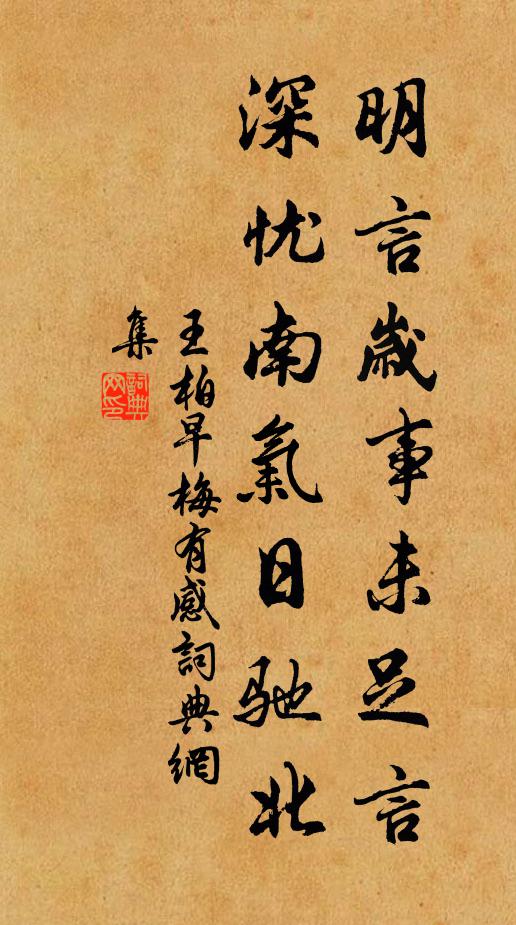 明言歲事未足言
深忧南氣日馳北
王柏早梅有感詞典網
集
詞典
网印